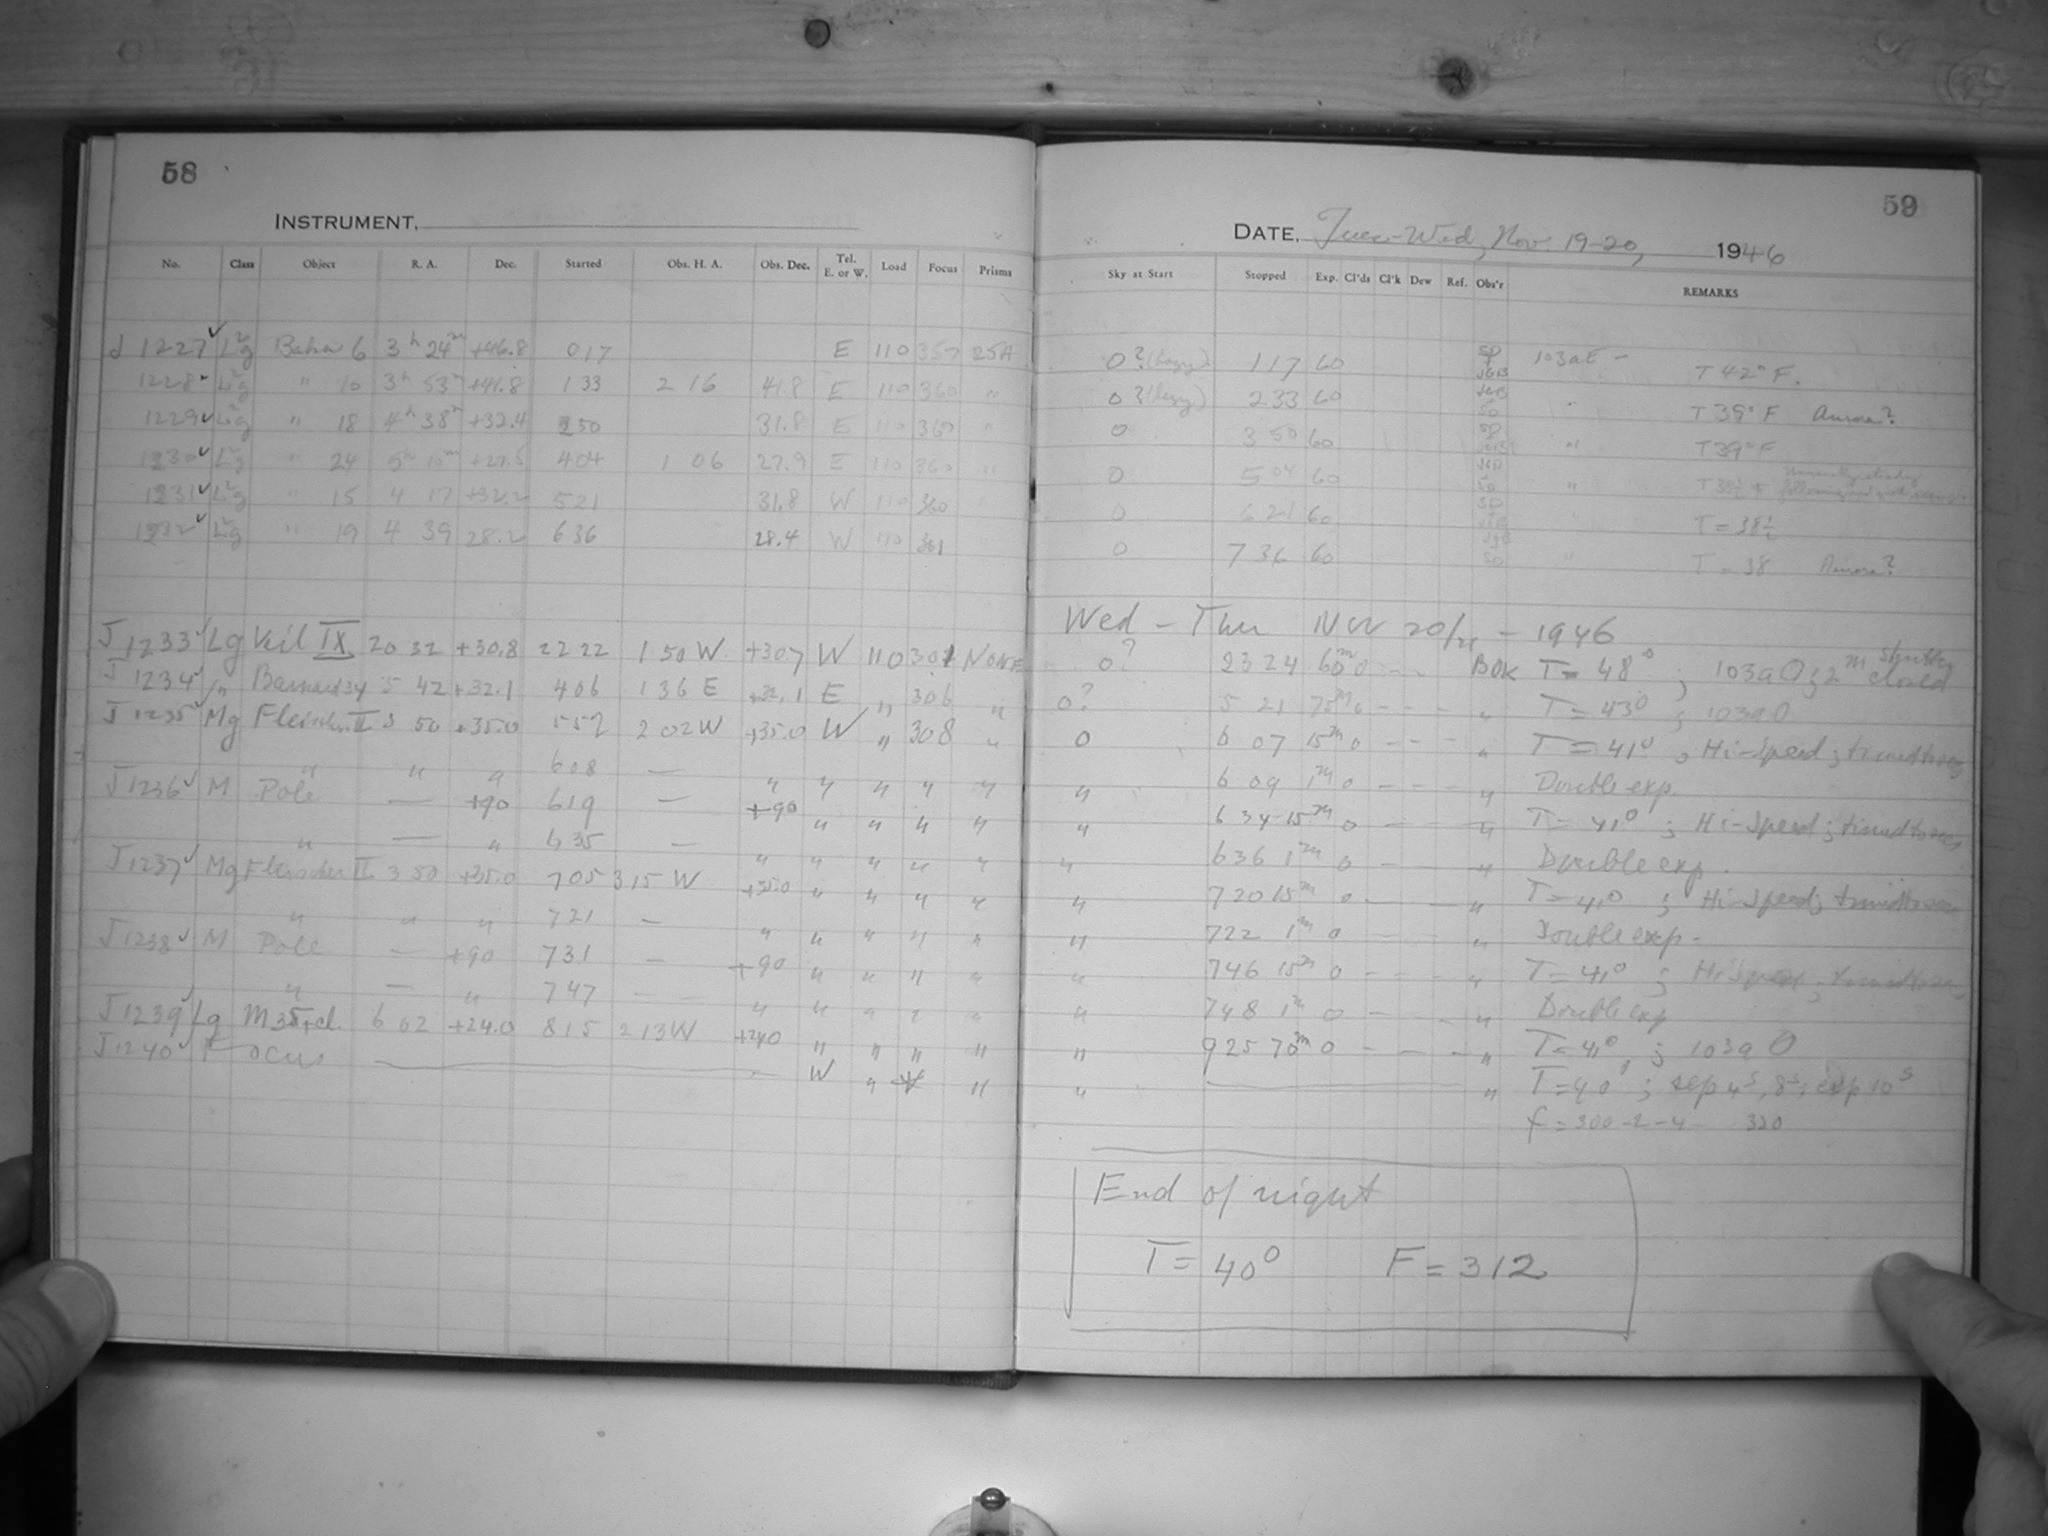 58
INSTRUMENT.
No. Class Object R. A. Dec. Started Obs. H. A. Obs. Dec. Tel. E. or W. Load Focus Prisms
J 1227 ✓ L²g 6 3h 24m +46.8 017 E 110 357 25A
1228 ✓ L²g " 10 3h 53m +41.8 133 2 16 41.8 E 110 360 "
1229 ✓ L²g " 18 4h 38m +32.4 250 31.8 E 110 360 "
1230 ✓ L²g " 24 5h 10m +27.5 404 1 06 27.9 E 110 360 "
1231 ✓ L²g " 15 4 17 +32.2 521 31.8 W 110 360 "
1232 ✓ L²g " 19 4 39 28.2 636 28.4 W 110 361 "
J 1233 ✓ Lg Veil IX 20 32 +30.8 22 22 1 50 W +30.7 W 110 301 NONE
J 1234 ✓ " Barnard 34 5 42 +32.1 406 1 36 E +32.1 E " 306 "
J 1235 ✓ Mg II 3 50 +35.0 552 2 02 W +35.0 W " 308 "
" " " 608 — " " " " "
J 1236 ✓ M Pole — +90 619 — +90 " " " "
" — " 635 — " " " " "
J 1237 ✓ Mg II 3 50 +35.0 705 3 15 W +35.0 " " " "
" " " 721 — " " " " "
J 1238 ✓ M Pole — +90 731 — +90 " " " "
" — " 747 — " " " " "
J 1239 ✓ Lg M35+cl. 6 02 +24.0 815 2 13 W +24.0 " " " "
J 1240 ✓ Focus W " "
59
DATE, Tues-Wed, Nov. 19-20, 1946
Sky at Start Stopped Exp. Cl'ds Cl'k Dew Ref. Obs'r REMARKS
0? (hazy) 117 60 103aE — T 42° F.
0? (hazy) 2 33 60 " T 39° F Aurora?
0 3 50 60 " T 39° F
0 5 04 60 "
0 6 21 60 " T = 38½
0 7 36 60 " T = 38 Aurora?
Wed – Thu Nov 20/21 – 1946
0? 23 24 60m 0 – – BOK T = 48° ; 103a O ; 2m shutter closed
0? 5 21 75m 0 – – – " T = 43° ; 103a O
0 6 07 15m 0 – – – " T = 41° ; Hi-Speed ;
" 6 09 1m 0 – – – " Double exp.
" 6 34 15m 0 – – – " T = 41° ; Hi-Speed ;
" 636 1m 0 – – – " Double exp.
" 720 15m 0 – – – " T = 41° ; Hi-Speed ;
" 722 1m 0 – – – " Double exp.
" 746 15m 0 – – – " T = 41° ; Hi Speed ;
" 748 1m 0 – – – " Double exp
" 925 70m 0 – – – " T = 41° ; 103a O
" " T = 40° ; sep 4s, 8s; exp 10s
f = 300 -2 -4 - 320
End of night
T = 40° F = 312